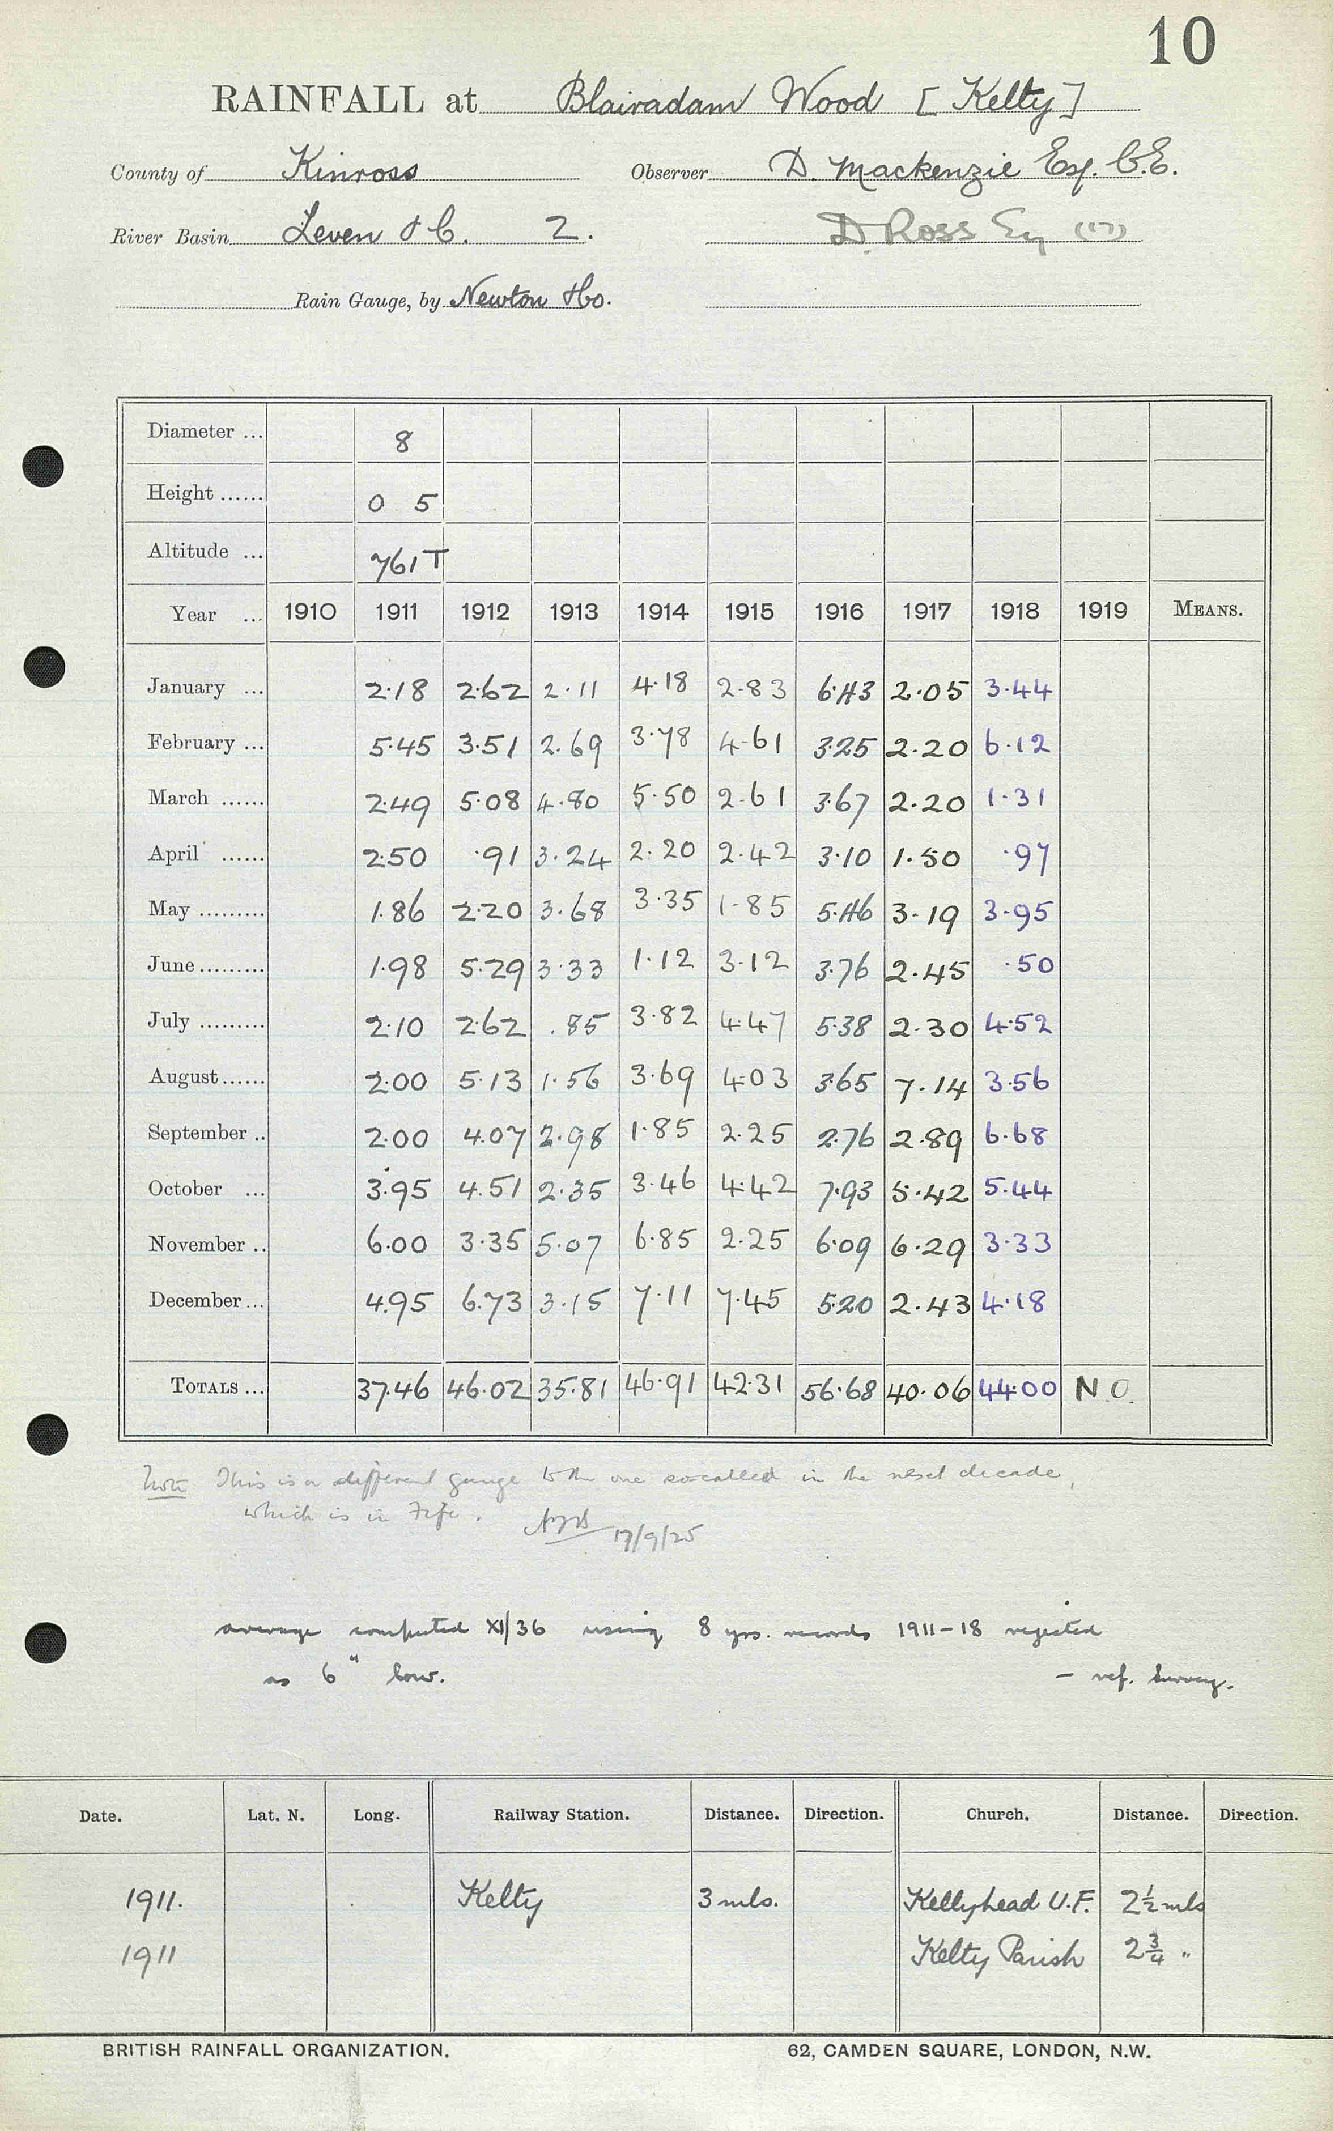 10
RAINFALL at Blairadam Wood [Kelty]
County of Kinross Observer D. Mackenzie Esq. C.E.
River Basin Leven &C. 2. D. Ross Esq (17)
Rain Gauge, by Newton &Co.
Diameter ... 8
Height ...... 0 5
Altitude ... 761T
Year ... 1910 1911 1912 1913 1914 1915 1916 1917 1918 1919 MEANS.
January ... 2.18 2.62 2.11 4.18 2.83 6.43 2.05 3.44
February ... 5.45 3.51 2.69 3.78 4.61 3.25 2.20 6.12
March ...... 2.49 5.08 4.80 5.50 2.61 3.67 2.20 1.31
April ...... 2.50 .91 3.24 2.20 2.42 3.10 1.50 .97
May ......... 1.86 2.20 3.68 3.35 1.85 5.46 3.19 3.95
June ......... 1.98 5.29 3.33 1.12 3.12 3.76 2.45 .50
July ......... 2.10 2.62 .85 3.82 4.47 5.38 2.30 4.52
August ...... 2.00 5.13 1.56 3.69 4.03 3.65 7.14 3.56
September .. 2.00 4.07 2.98 1.85 2.25 2.76 2.89 6.68
October ... 3.95 4.51 2.35 3.46 4.42 7.93 5.42 5.44
November .. 6.00 3.35 5.07 6.85 2.25 6.09 6.29 3.33
December ... 4.95 6.73 3.15 7.11 7.45 5.20 2.43 4.18
TOTALS ... 37.46 46.02 35.81 46.91 42.31 56.68 40.06 44.00 N O
Note This is a different gauge to the one so called in the next decade,
which is in Fife. 17/9/25
average computed XI/36 using 8 yrs. records 1911-18 rejected
as 6" low. - ref. Survey.
Date. Lat. N. Long. Railway Station. Distance. Direction. Church. Distance. Direction.
1911. Kelty 3 mls. Kellyhead U.F. 2½ mls
1911 Kelty Parish 2¾ "
BRITISH RAINFALL ORGANIZATION. 62, CAMDEN SQUARE, LONDON, N.W.